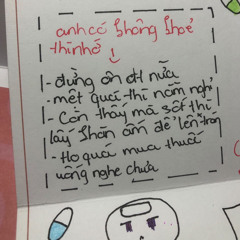 anh có không khoẻ
thì nhớ
- đừng ôn đt nữa
- mệt quá thì nằm nghỉ
- Còn thấy mà sốt thì
lấy khăn ấm để lên trán
- Ho quá mua thuốc
uống nghe chưa